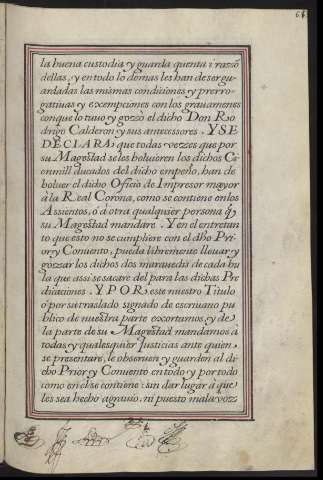 la buena custodia y guarda quenta i razõ
dellas, y en todo lo demas les han de ser gu-
ardadas las mismas condiciones y prerro-
gatiuas y exempciones con los grauamenes
con que lo tuuo y gozzó el dicho Don Ro-
drigo Calderon y sus antecessores. Y SE
DECLARA, que todas vezzes que por
su Magestad se les boluieren los dichos Ci-
enmill ducados del dicho empeño, han de
boluer el dicho Oficio de Impresor mayor
à la Real Corona, como se contiene en los
Assientos, ó à otra qualquier persona q̃
su Magestad mandare. Y en el entretan
to que esto no se cumpliere con el dho Pri-
or y Conuento, pueda libremente lleuar y
gozzar los dichos dos marauedis de cada bu
la que assi se sacare del para las dichas Pre
dicaciones. Y POR este nuestro Titulo
ó por su traslado signado de escriuano pu
blico de nuestra parte exortamos, y de
la parte de su Magestad mandamos à
todas y qualesquier Justicias ante quien
se presentare, le obseruen y guarden al di-
cho Prior y Conuento en todo y por todo
como en el se contiene: sin dar lugar à que
les sea hecho agrauio, ni puesto mala vozz